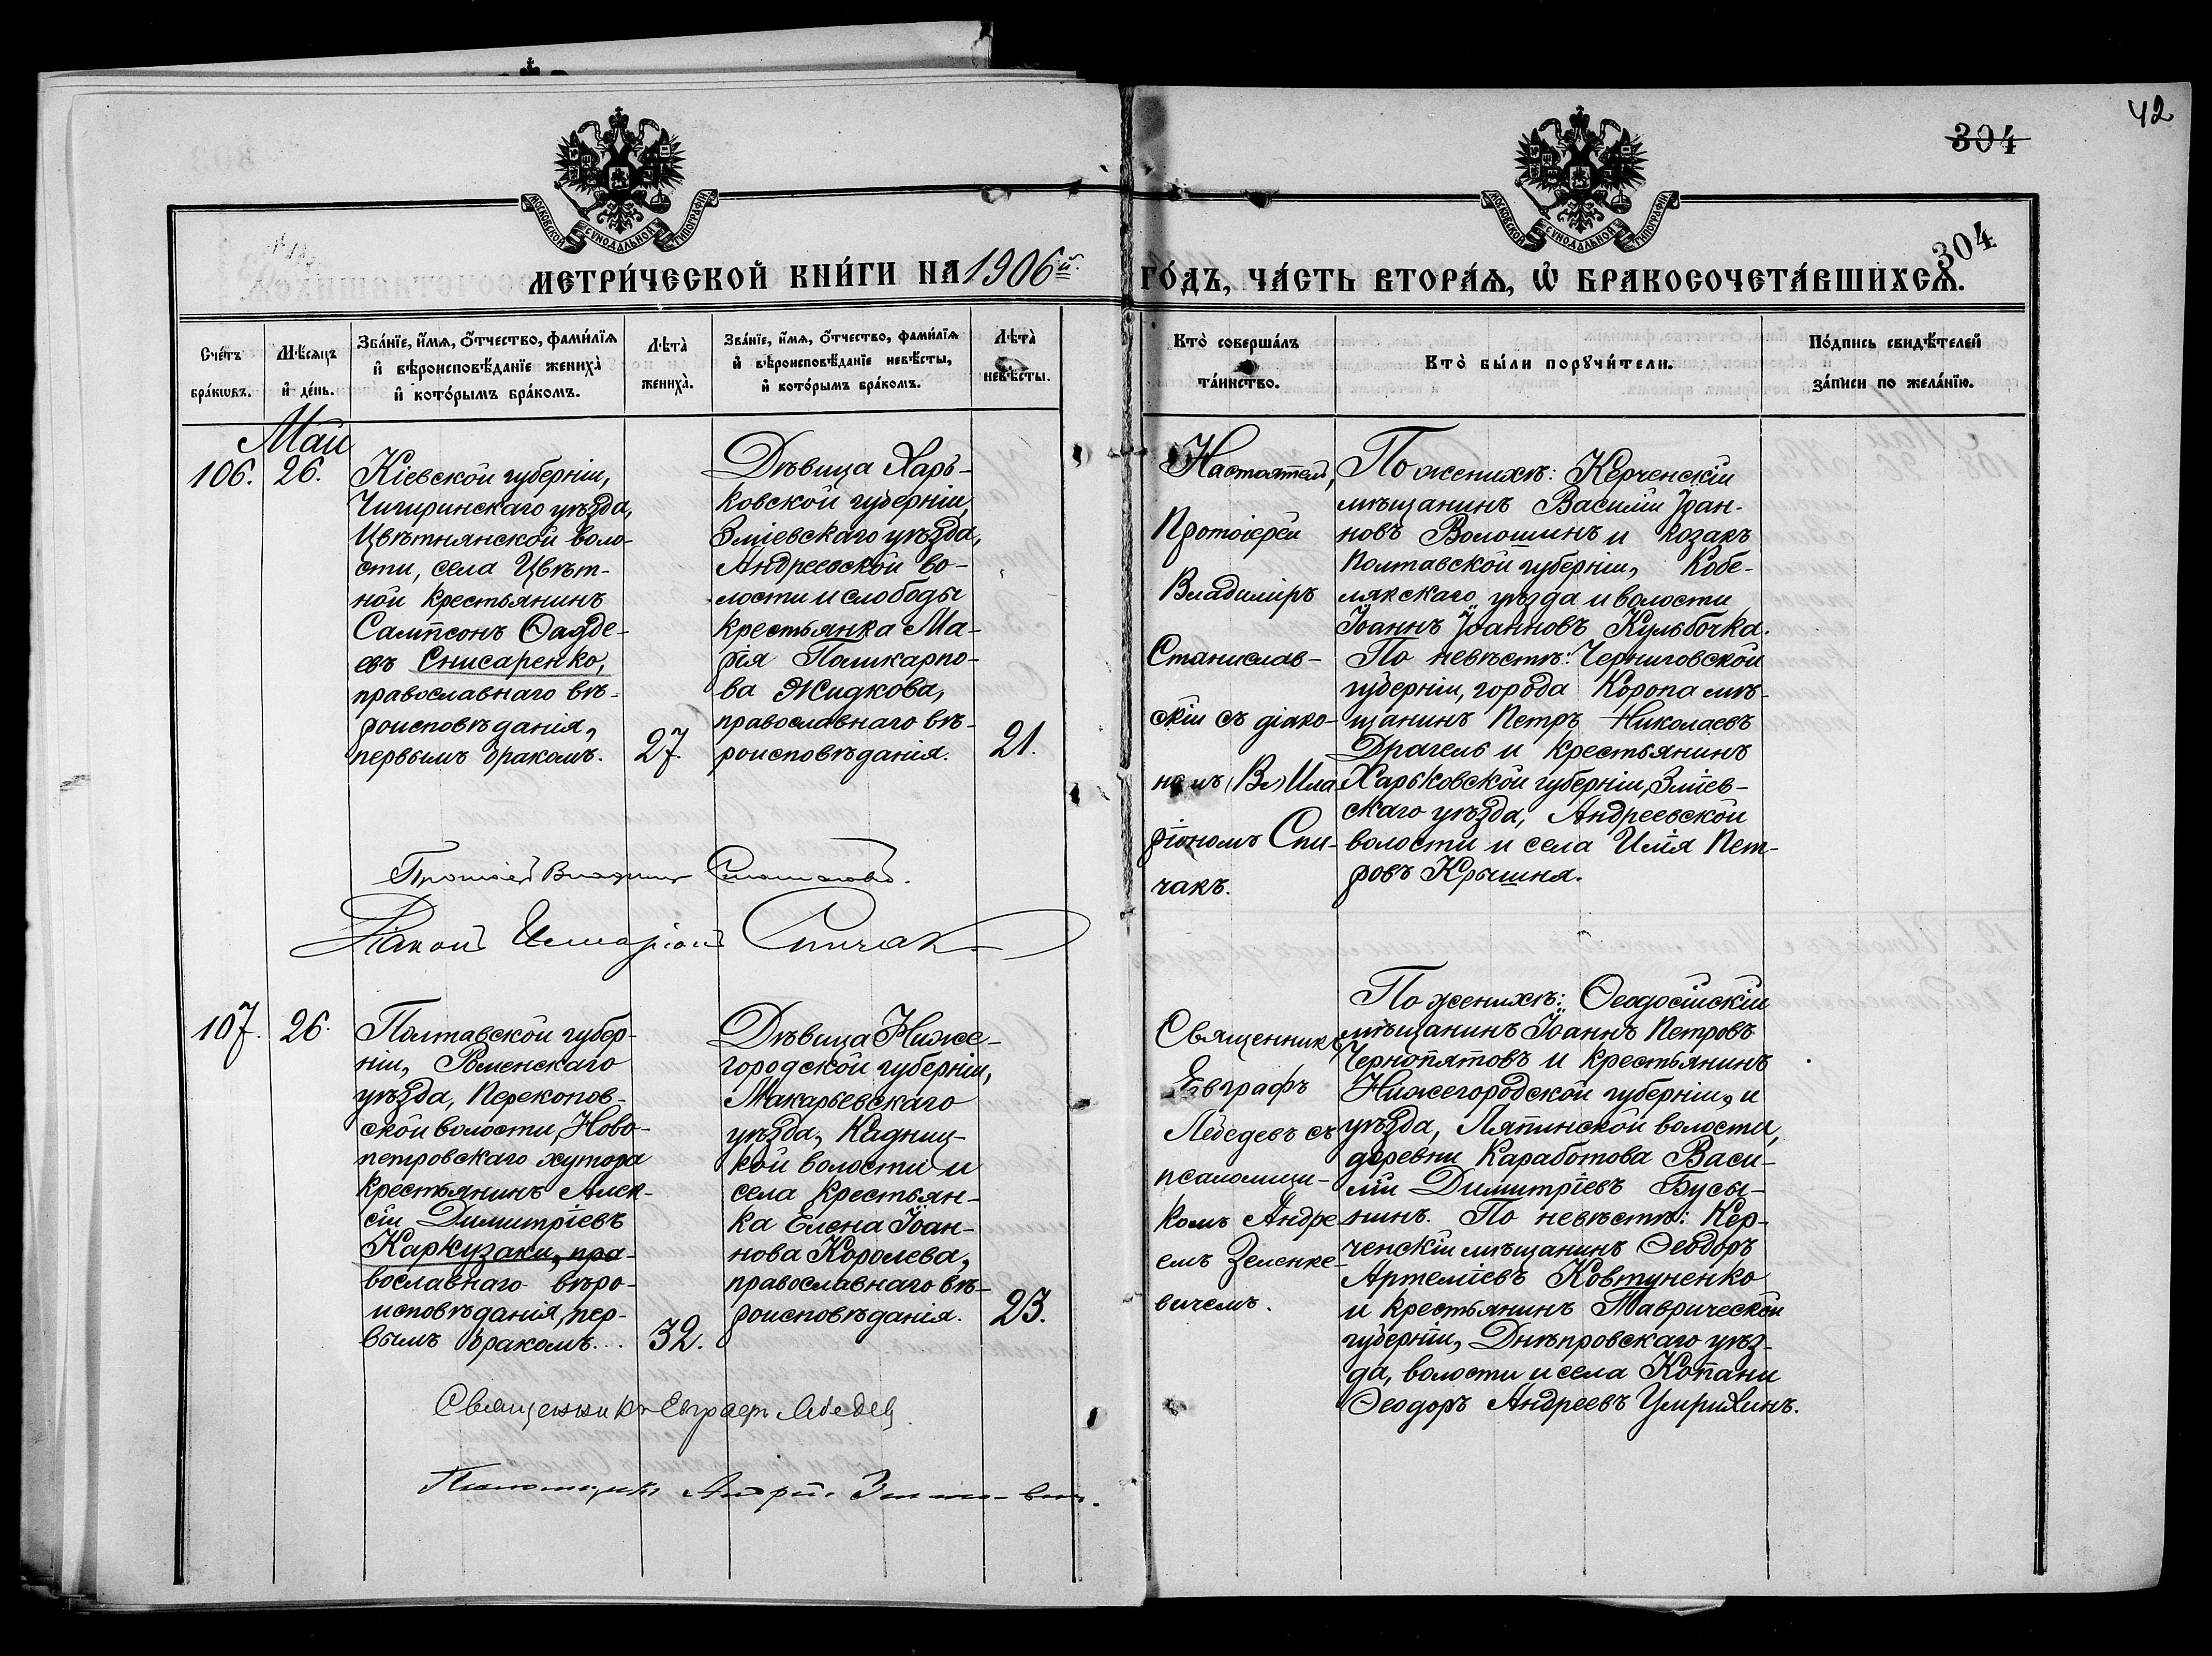 42
304
304
МОСКОВСКОЙ СѴНОДАЛЬНОЙ ТИПОГРАФІИ.
МОСКОВСКОЙ СѴНОДАЛЬНОЙ ТИПОГРАФІИ.
МЕТРИ́ЧЕСКОЙ КНИ́ГИ НА 1906й.
ГО́ДЪ, ЧА́СТЬ ВТОРА́Ѧ, Ѡ҆ БРАКОСОЧЕТА́ВШИХСѦ.
Сче́тъ
бра́кѡвъ.
Мѣ́сяцъ
и҆ де́нь.
Зва́нїе, и҆́мѧ, ѻ҆́тчество, фами́лїѧ
и҆ вѣроисповѣ́данїе жениха̀
и҆ кото́рымъ бра́комъ.
Лѣта̀
жениха̀.
Зва́нїе, и҆́мѧ, ѻ҆́тчество, фами́лїѧ
и҆ вѣроисповѣ́данїе невѣ́сты,
и҆ кото́рымъ бра́комъ.
Лѣта̀
невѣ́сты.
Кто̀ соверша́лъ
та́инство.
Кто̀ бы́ли порꙋчи́тели.
По́дпись свидѣ́телей
за́писи по жела́нїю.
Май
106.
26.
Кіевской губерніи,
Чигиринскаго уѣзда,
Цвѣтнянской воло-
сти, села Цвѣт-
ной крестьянинъ
Сампсонъ Ѳадде-
евъ Снисаренко,
православнаго вѣ-
роисповѣданія,
первымъ бракомъ.
27.
Дѣвица Харь-
ковской губерніи,
Зміевскаго уѣзда,
Андреевской во-
лости и слободы
крестьянка Ма-
рія Поликарпо-
ва Жидкова,
православнаго вѣ-
роисповѣданія.
21.
Настоятель,
Протоіерей
Владиміръ
Станислав-
скій съ діако-
номъ Ила
ріономъ Спи-
чакъ.
По женихѣ: Керченскій
мѣщанинъ Василій Іоан-
новъ Волошинъ и козакъ
Полтавской губерніи, Кобе-
лякскаго уѣзда и волости
Іоаннъ Іоанновъ Кульбочка.
По невѣстѣ: Черниговской
губерніи, города Коропа мѣ-
щанинъ Петръ Николаевъ
Драгель и крестьянинъ
Харьковской губерніи, Зміев-
скаго уѣзда, Андреевской
волости и села Илія Пет-
ровъ Крышня.
Протоіерей Владиміръ
Діаконъ Иларіонъ Спичакъ
107.
26.
Полтавской губер-
ніи, Роменскаго
уѣзда, Перекопов-
ской волости, Ново-
петровскаго хутора
крестьянинъ Алек-
сій Димитріевъ
Каркузаки, пра-
вославнаго вѣро-
исповѣданія, пер-
вымъ бракомъ...
32.
Дѣвица Ниже-
городской губерніи,
Макарьевскаго
уѣзда, Кадниц-
кой волости и
села крестьян-
ка Елена Іоан-
нова Королева,
православнаго вѣ-
роисповѣданія.
23.
Священникъ
Евграфъ
Лебедевъ съ
псаломщи-
комъ Андре
емъ Зеленке-
вичемъ.
По женихѣ: Ѳеодосійскій
мѣщанинъ Іоаннъ Петровъ
Чернопятовъ и крестьянинъ
Нижегородской губерніи, и
уѣзда, Ляпинской волости,
деревни Каработова Васи-
лій Димитріевъ Бусы-
нинъ. По невѣстѣ: Кер-
ченскій мѣщанинъ Ѳеодоръ
Артеміевъ Ковтуненко
и крестьянинъ Таврической
губерніи, Днѣпровскаго уѣз-
да, волости и села Копани
Ѳеодоръ Андреевъ Умрихинъ.
Священникъ Евграфъ Лебедевъ
Псаломщикъ Андрей